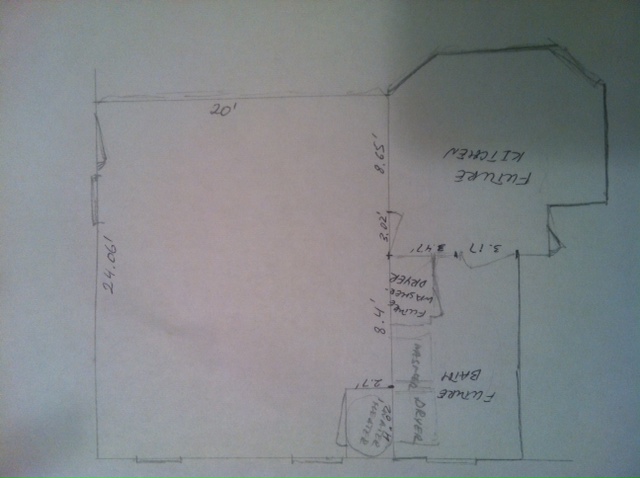 24.06'
20'
WATER
HEATER
2.7'
8.4'
3.02'
8.65'
DRYER
WASHER
FUTURE
WASHER
DRYER
3.47'
3.17
FUTURE
BATH
FUTURE
KITCHEN